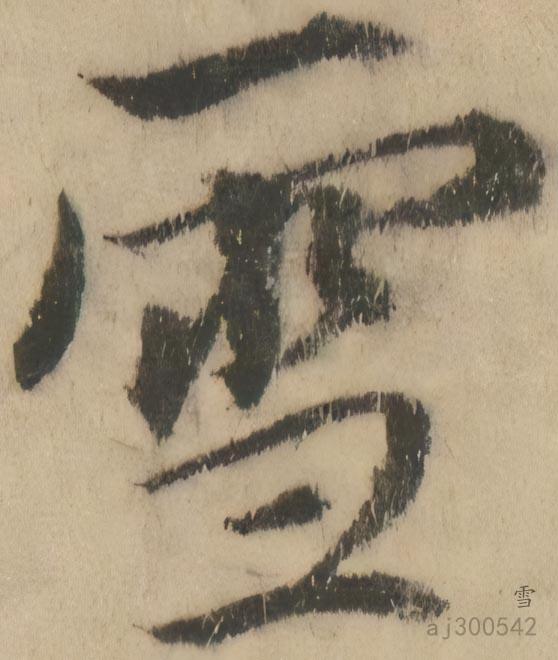 雪
雪
aj300542